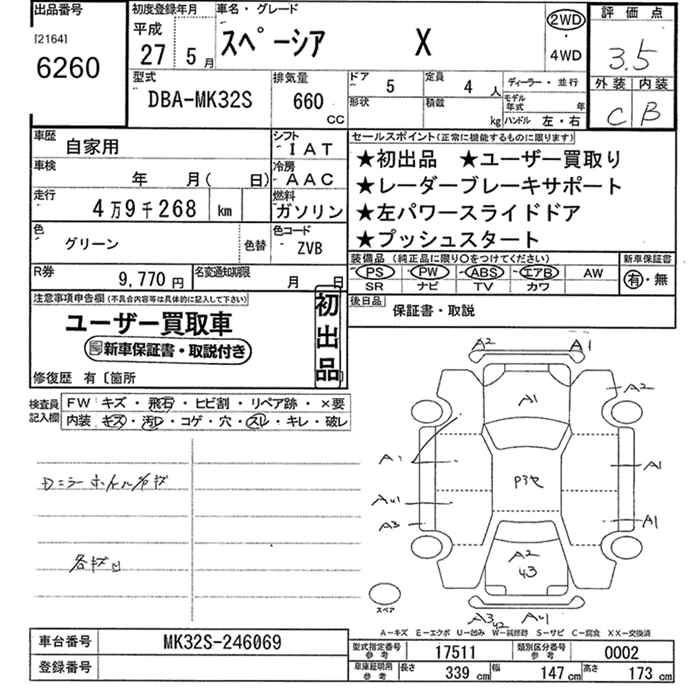 出品番号
[2164]
6260
初度登録年月
平成
27 5月
車名・グレード
スペーシア X
2WD
・
4WD
評価点
3.5
外装 内装
C B
型式
DBA-MK32S
排気量
660
cc
ドア
5
定員
4人
形状
積載
kg
ディーラー・並行
モデル年式 年
ハンドル 左・右
車歴
自家用
シフト
IAT
車検
年 月( 日)
冷房
AAC
走行
4万9千268 km
燃料
ガソリン
色
グリーン
色替
色コード
ZVB
R券
9,770円
名変通知期限
月 日
セールスポイント(正常に機能するものに限ります)
★初出品 ★ユーザー買取り
★レーダーブレーキサポート
★左パワースライドドア
★プッシュスタート
装備品(純正品に限り〇をつけてください)
新車保証書
PS PW ABS エアB AW
SR ナビ TV カワ
有・無
後日品
保証書・取説
注意事項申告欄(不具合内容等は具体的に記入して下さい)
ユーザー買取車
新車保証書・取説付き
初出品
修復歴 有〔箇所
検査員記入欄
FW キズ・飛石・ヒビ割・リペア跡・×要
内装 キズ・汚レ・コゲ・穴・スレ・キレ・破レ
A2
A1
A2
A1
A1
A1
P3ヤ
AU1
A3
A1
A2
U3
AU1
スペア
A−キズ E−エクボ U−凹み W−純修跡 S−サビ C−腐食 XX−交換済
車台番号
MK32S-246069
登録番号
型式指定番号 参考
17511
類別区分番号 参考
0002
車庫証明用 参考
長さ 339 cm 幅 147 cm 高さ 173 cm